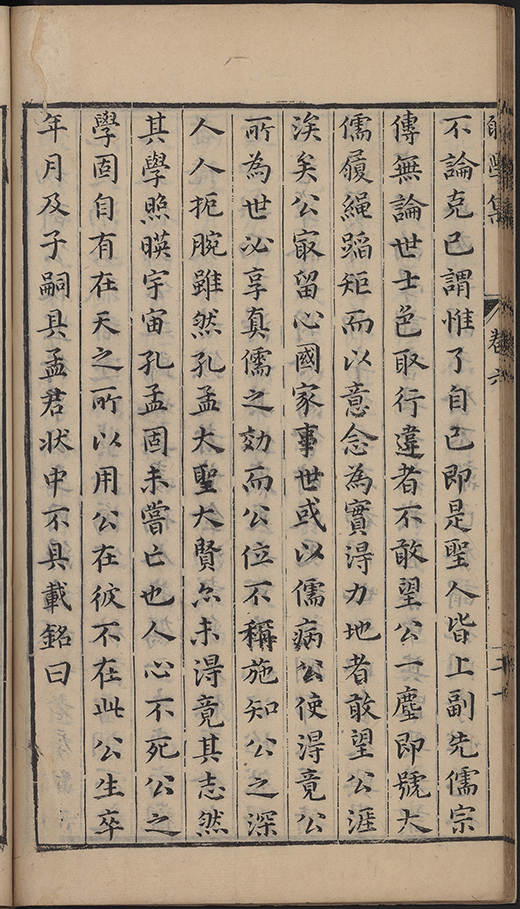 學集 卷六
不論克己謂惟了自己即是聖人皆上副先儒宗
傳無論世士色取行違者不敢望公一塵即號大
儒履繩蹈矩而以意念為實得力地者敢望公涯
涘矣公㝡留心國家事世或以儒病公使得竟公
所為世必享真儒之効而公位不稱施知公之深
人人扼腕雖然孔孟大聖大賢亦未得竟其志然
其學照暎宇宙孔孟固未嘗亡也人心不死公之
學固自有在天之所以用公在彼不在此公生卒
年月及子嗣具孟君状中不具載銘曰